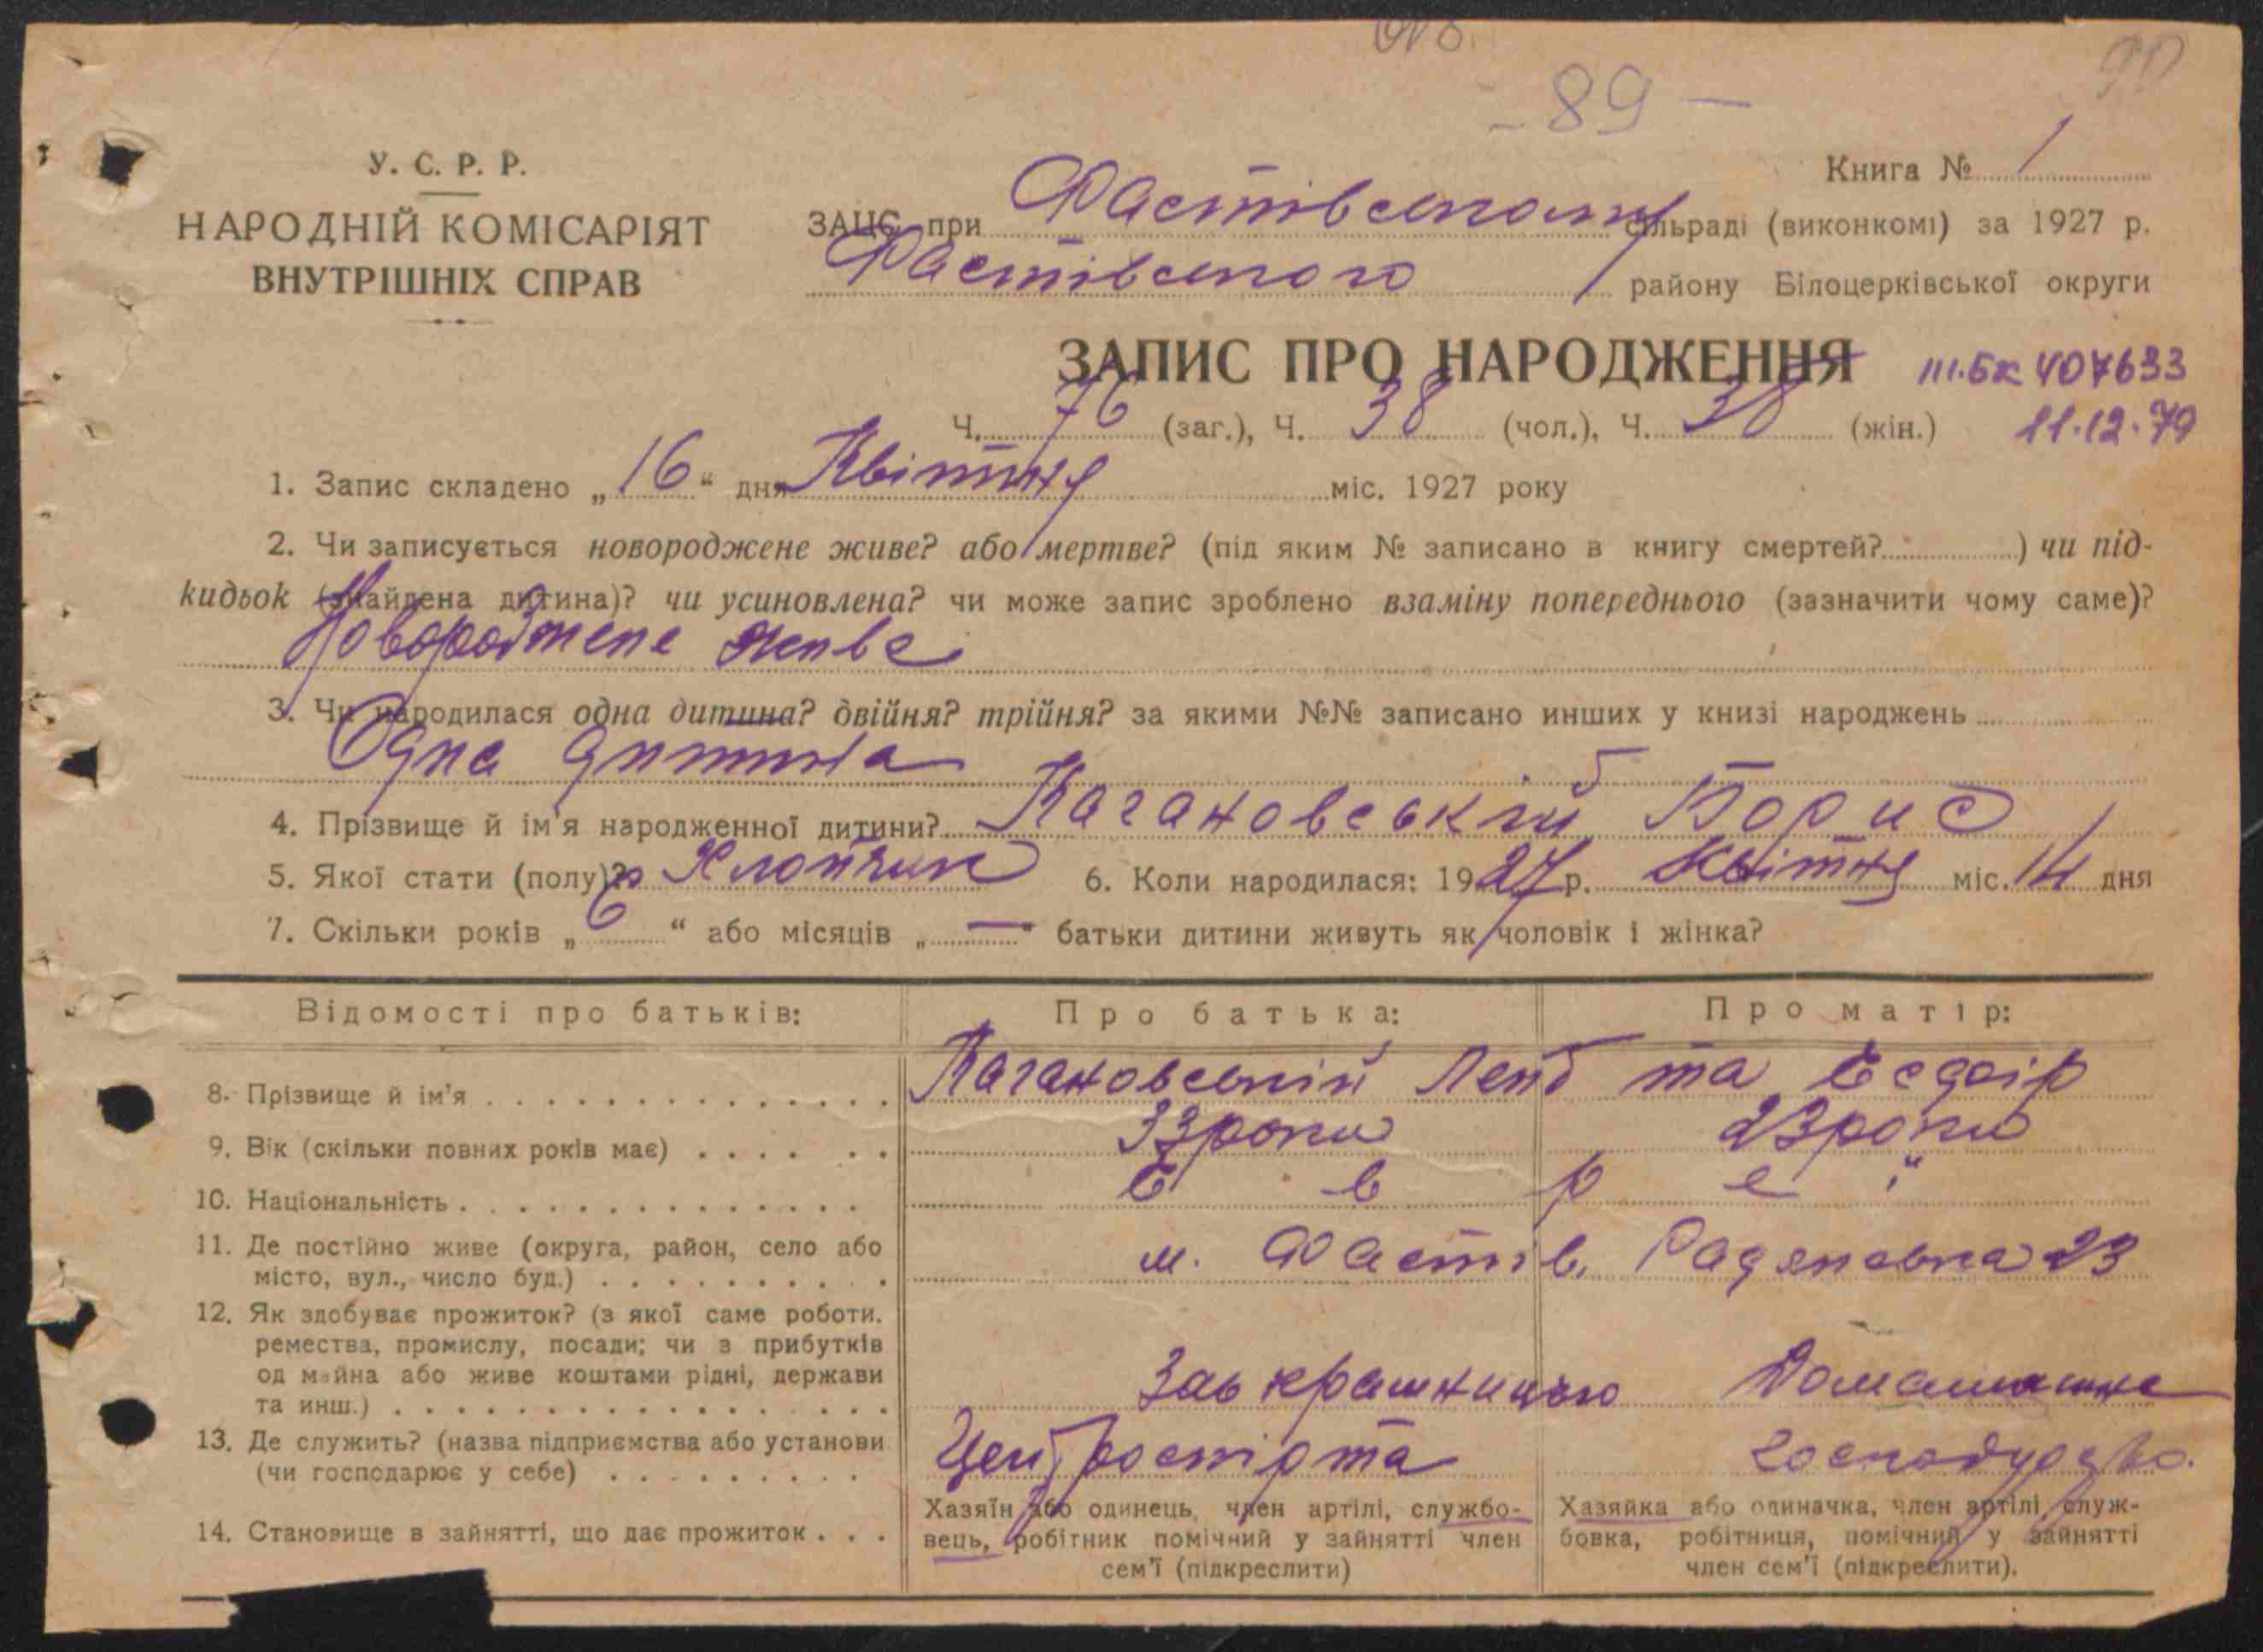 - 89 -
90
У. С. Р. Р.
НАРОДНІЙ КОМІСАРІЯТ
ВНУТРІШНІХ СПРАВ
Книга № 1
ЗАЦС при Фастівському сільраді (виконкомі) за 1927 р.
Фастівського району Білоцерківської округи
ЗАПИС ПРО НАРОДЖЕННЯ
407633
Ч. 76 (заг.), Ч. 38 (чол.), Ч. 38 (жін.)
11.12.79
1. Запис складено „16“ дня Квітня міс. 1927 року
2. Чи записується новороджене живе? або мертве? (під яким № записано в книгу смертей?) чи під-
кидьок (знайдена дитина)? чи усиновлена? чи може запис зроблено взаміну попереднього (зазначити чому саме)?
Новороджене живе
3. Чи народилася одна дитина? двійня? трійня? за якими №№ записано инших у книзі народжень
Одна дитина
4. Прізвище й ім'я народженної дитини? Кагановський Борис
5. Якої стати (полу)? Хлопчик 6. Коли народилася: 1927 р. Квітня міс. 14 дня
7. Скільки років „6“ або місяців „—“ батьки дитини живуть як чоловік і жінка?
Відомості про батьків: Про батька: Про матір:
8. Прізвище й ім'я Кагановський Лейб та
9. Вік (скільки повних років має) 33 роки 23 роки
10. Національність Евреї
11. Де постійно живе (округа, район, село або
місто, вул., число буд.) м. Фастів, Радянська 23
12. Як здобуває прожиток? (з якої саме роботи.
ремества, промислу, посади; чи з прибутків
од майна або живе коштами рідні, держави
та инш.) Зав крамницью Домашнє
13. Де служить? (назва підприємства або установи
(чи господарює у себе) господарство.
14. Становище в зайнятті, що дає прожиток
Хазяїн або одинець, член артілі, службо-
вець, робітник помічний у зайнятті член
сем'ї (підкреслити)
Хазяйка або одиначка, член артілі, служ-
бовка, робітниця, помічний у зайнятті
член сем'ї (підкреслити).